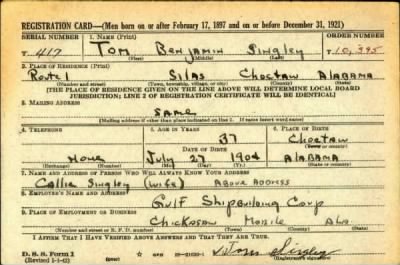 REGISTRATION CARD—(Men born on or after February 17, 1897 and on or before December 31, 1921)
SERIAL NUMBER 1. NAME (Print) ORDER NUMBER
T 417 Tom Benjamin Singley T 10,395
(First) (Middle) (Last)
2. PLACE OF RESIDENCE (Print)
Route 1 Silas Choctaw Alabama
(Number and street) (Town, township, village, or city) (County) (State)
[THE PLACE OF RESIDENCE GIVEN ON THE LINE ABOVE WILL DETERMINE LOCAL BOARD
JURISDICTION; LINE 2 OF REGISTRATION CERTIFICATE WILL BE IDENTICAL]
3. MAILING ADDRESS
Same
[Mailing address if other than place indicated on line 2. If same insert word same]
4. TELEPHONE 5. AGE IN YEARS 6. PLACE OF BIRTH
37 Choctaw
DATE OF BIRTH (Town or county)
None July 27 1904 Alabama
(Exchange) (Number) (Mo.) (Day) (Yr.) (State or country)
7. NAME AND ADDRESS OF PERSON WHO WILL ALWAYS KNOW YOUR ADDRESS
Callie Singley (wife) Above Address
8. EMPLOYER'S NAME AND ADDRESS
Gulf Shipbuilding Corp
9. PLACE OF EMPLOYMENT OR BUSINESS
Chickasaw Mobile Ala
(Number and street or R. F. D. number) (Town) (County) (State)
I AFFIRM THAT I HAVE VERIFIED ABOVE ANSWERS AND THAT THEY ARE TRUE.
D. S. S. Form 1
(Revised 1-1-42) (over) Tom Singley
(Registrant's signature)